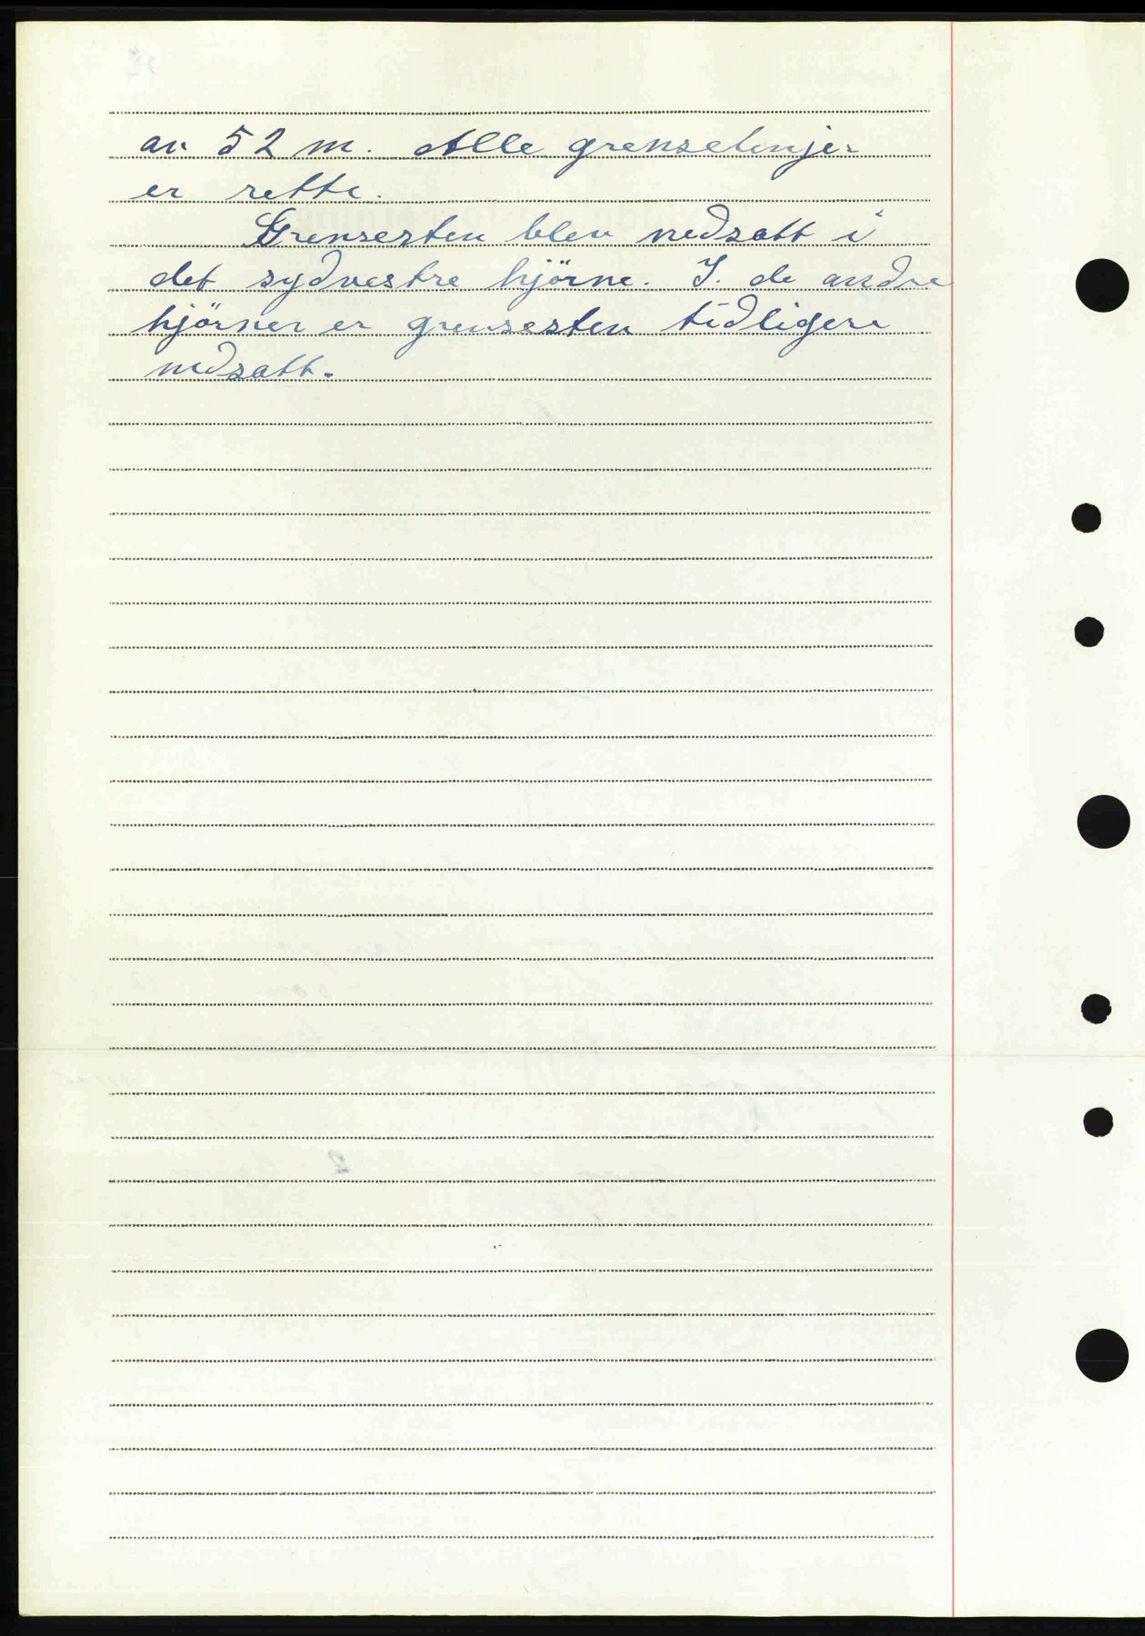 av 52 m. Alle grenselinjer
er rette.
Grensesten blev nedsatt i
det sydvestre hjörne. I. de andre
hjörner er grensesten tidligere
nedsatt.